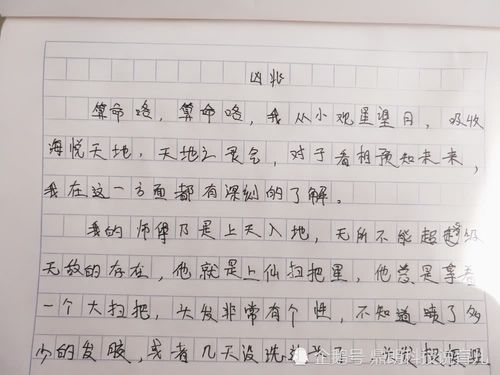 凶兆
算命咯，算命咯，我从小观星望月，吸收
海悦天地，天地之灵会，对于看相预知未来，
我在这一方面都有深刻的了解。
我的师傅乃是上天入地，无所不能超级
无敌的存在，他就是上仙扫把星，他总是拿着
一个大扫把，头发非常有个性，不知道喷了多
少的发胶，或者几天没洗
企鹅号